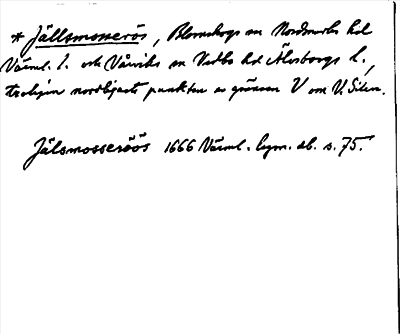 * Jällsmosserös, Blomskogs sn Nordmarks hd
Värml. l. och Vårviks sn Vedbo hd Älvsborgs l.,
troligen nordligaste punkten av gränsen V om V. Silen.
Jälsmosseröös 1666 Värml. legm. db. s. 75.